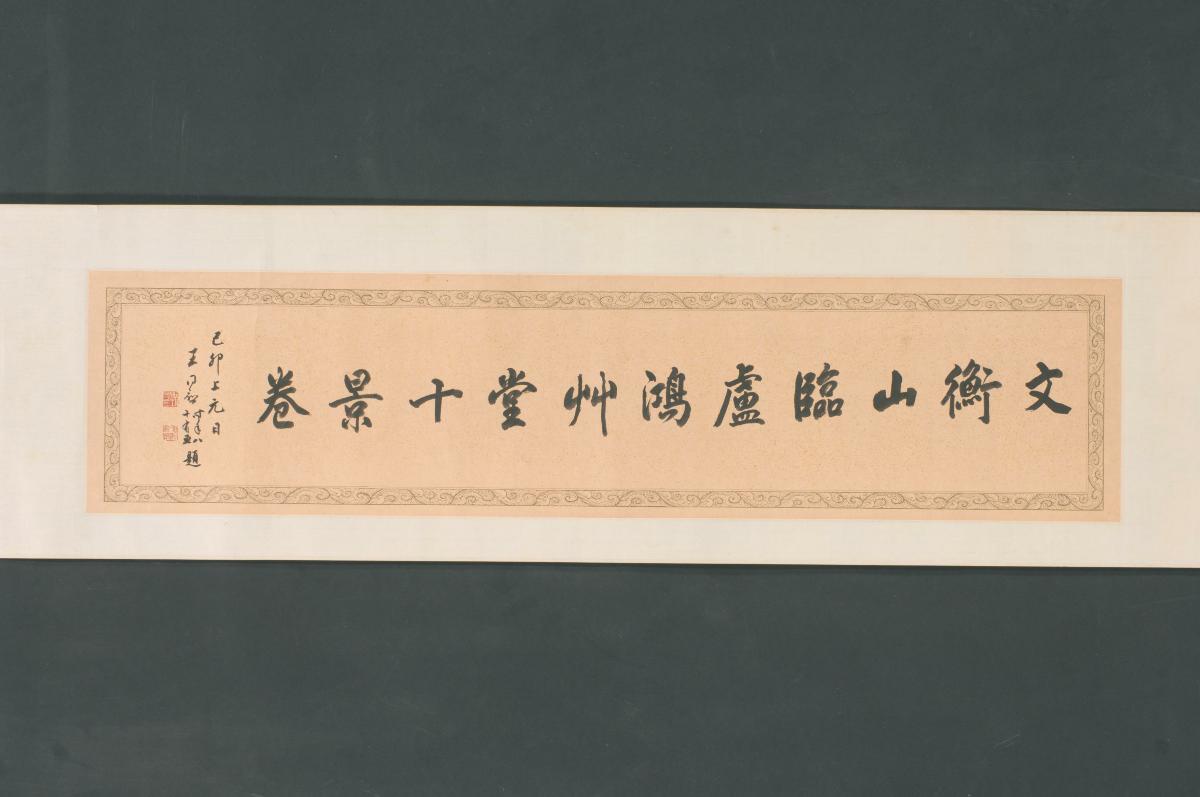 文衡山臨盧鴻艸堂十景卷
己卯上元日
王同愈時年八十有五題